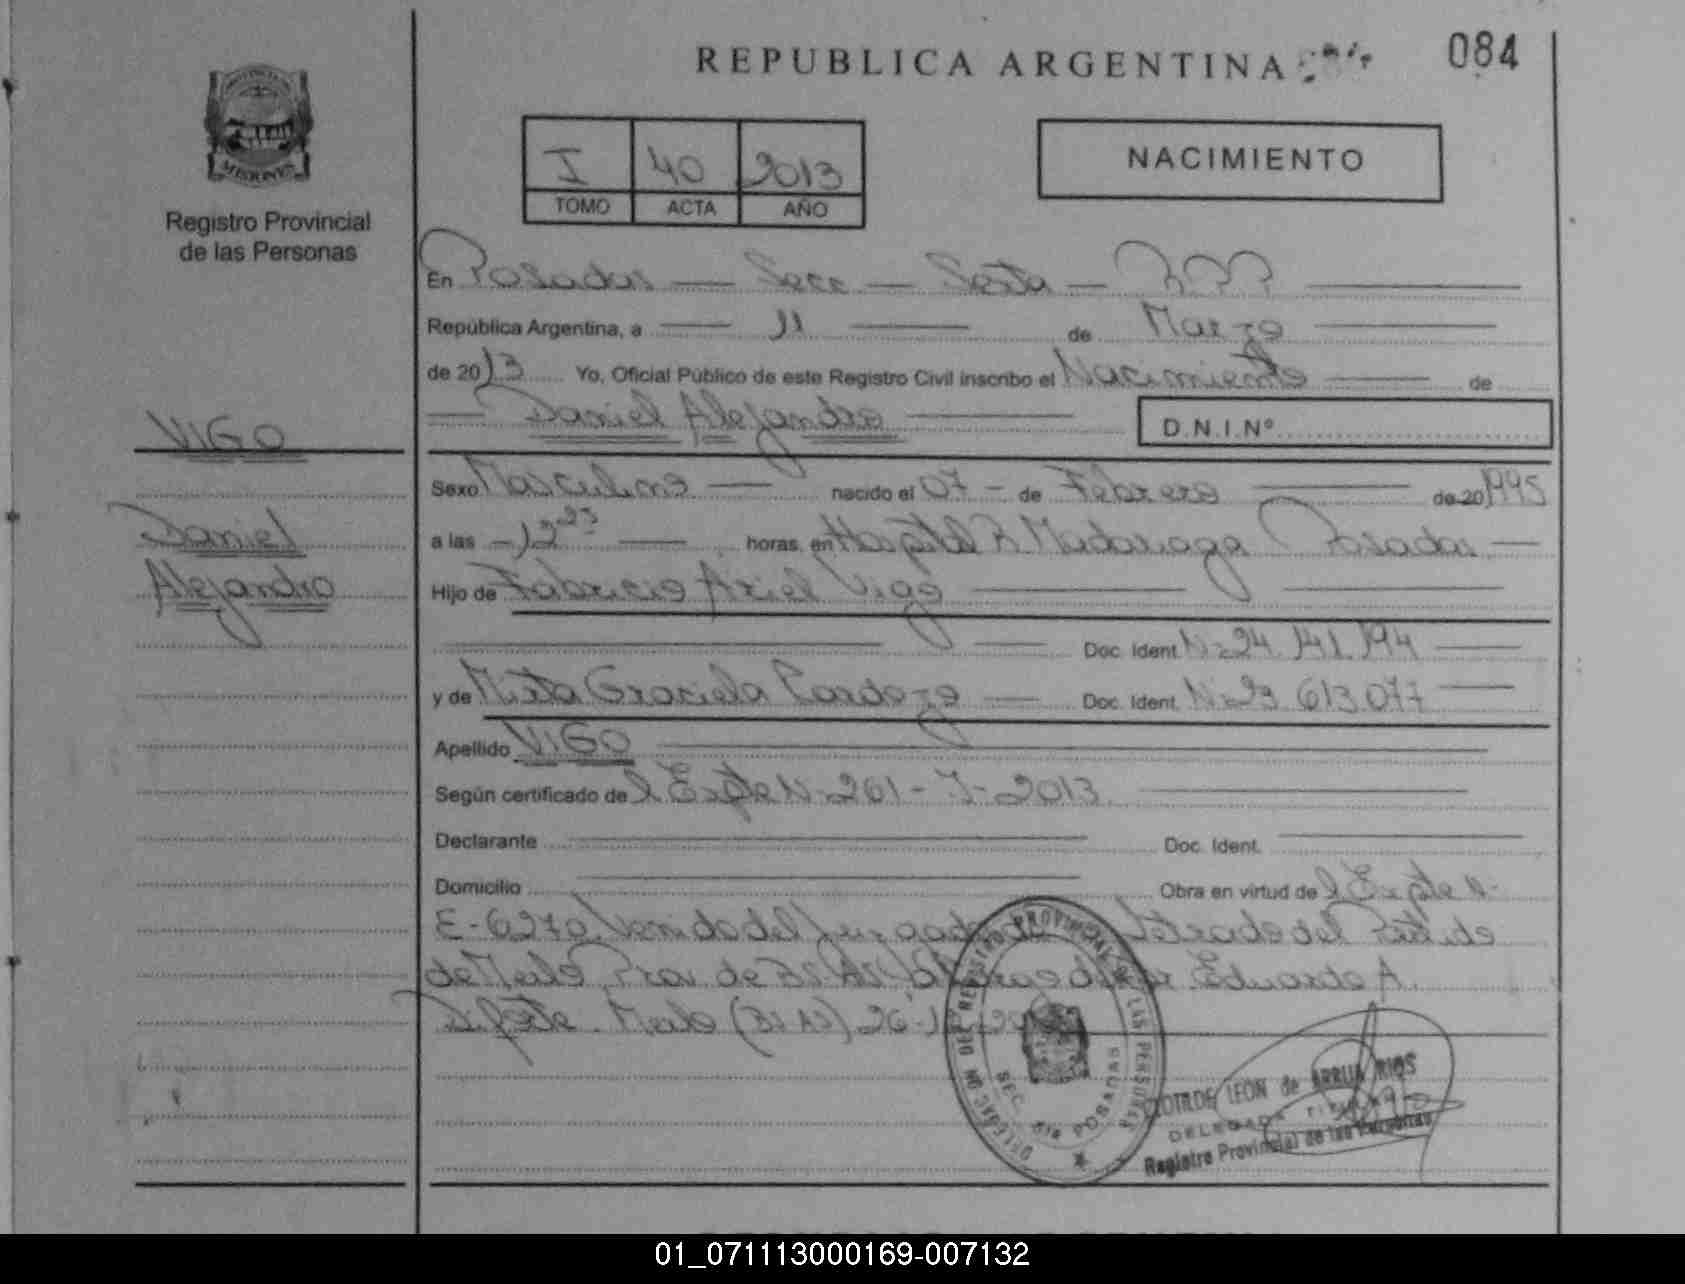 REPUBLICA ARGENTINA
084
PROVINCIA DE
MISIONES
Registro Provincial
de las Personas
I 40 2013
TOMO ACTA AÑO
NACIMIENTO
En Posadas — Secc — Sexta —
República Argentina, a — 11 — de Marzo —
de 2013 Yo, Oficial Público de este Registro Civil inscribo el Nacimiento — de
— Daniel Alejandro — D.N.I.Nº
VIGO
Daniel
Alejandro
Sexo Masculino — nacido el 07 - de Febrero — de 20 1995
a las - 12 23 — horas, en Hospital R Madariaga Posadas —
Hijo de Fabricio Ariel Vigo —
Doc. Ident. Nº 24.141.194 —
y de Mirta Graciela Cardozo — Doc. Ident. Nº 23.613.077 —
Apellido VIGO —
Según certificado del Expte Nº 261 - I - 2013
Declarante — Doc. Ident. —
Domicilio — Obra en virtud del Expte Nº
E-6270 Venido del Juzgado Letrado del Partido
de Merlo Prov. de Bs As a cargo del Eduardo A.
Merlo (Bs As) 26
DELEGAC NO DEL REGISTRO PROVINCIAL DE LAS PERSONAS
SEC. 6ta POSADAS
CLOTILDE LEON de ARRUA RIOS
DELEGADA TITULAR
Registro Provincial de las Personas
01_071113000169-007132